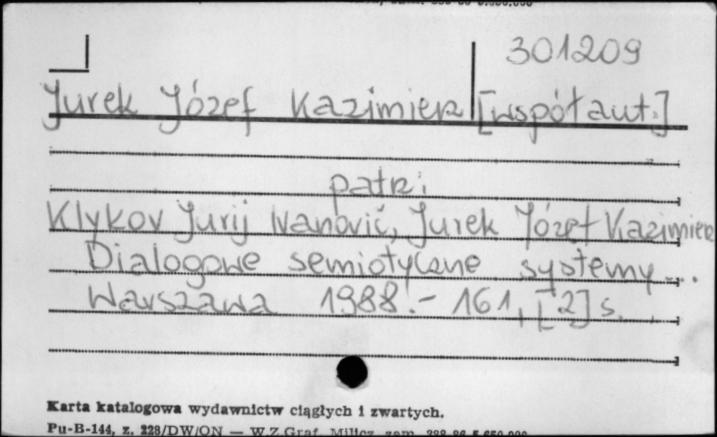 301209
Jurek Józef Kazimierz [współaut.]
patrz:
Klykov Jurij Ivanovič, Jurek Józef Kazimierz
Dialogowe semiotyczne systemy...
Warszawa 1988.- 161, [2] s.
Karta katalogowa wydawnictw ciągłych i zwartych.
Pu-B-144, z. 228/DW/ON — W.Z.Graf. Milicz, zam.